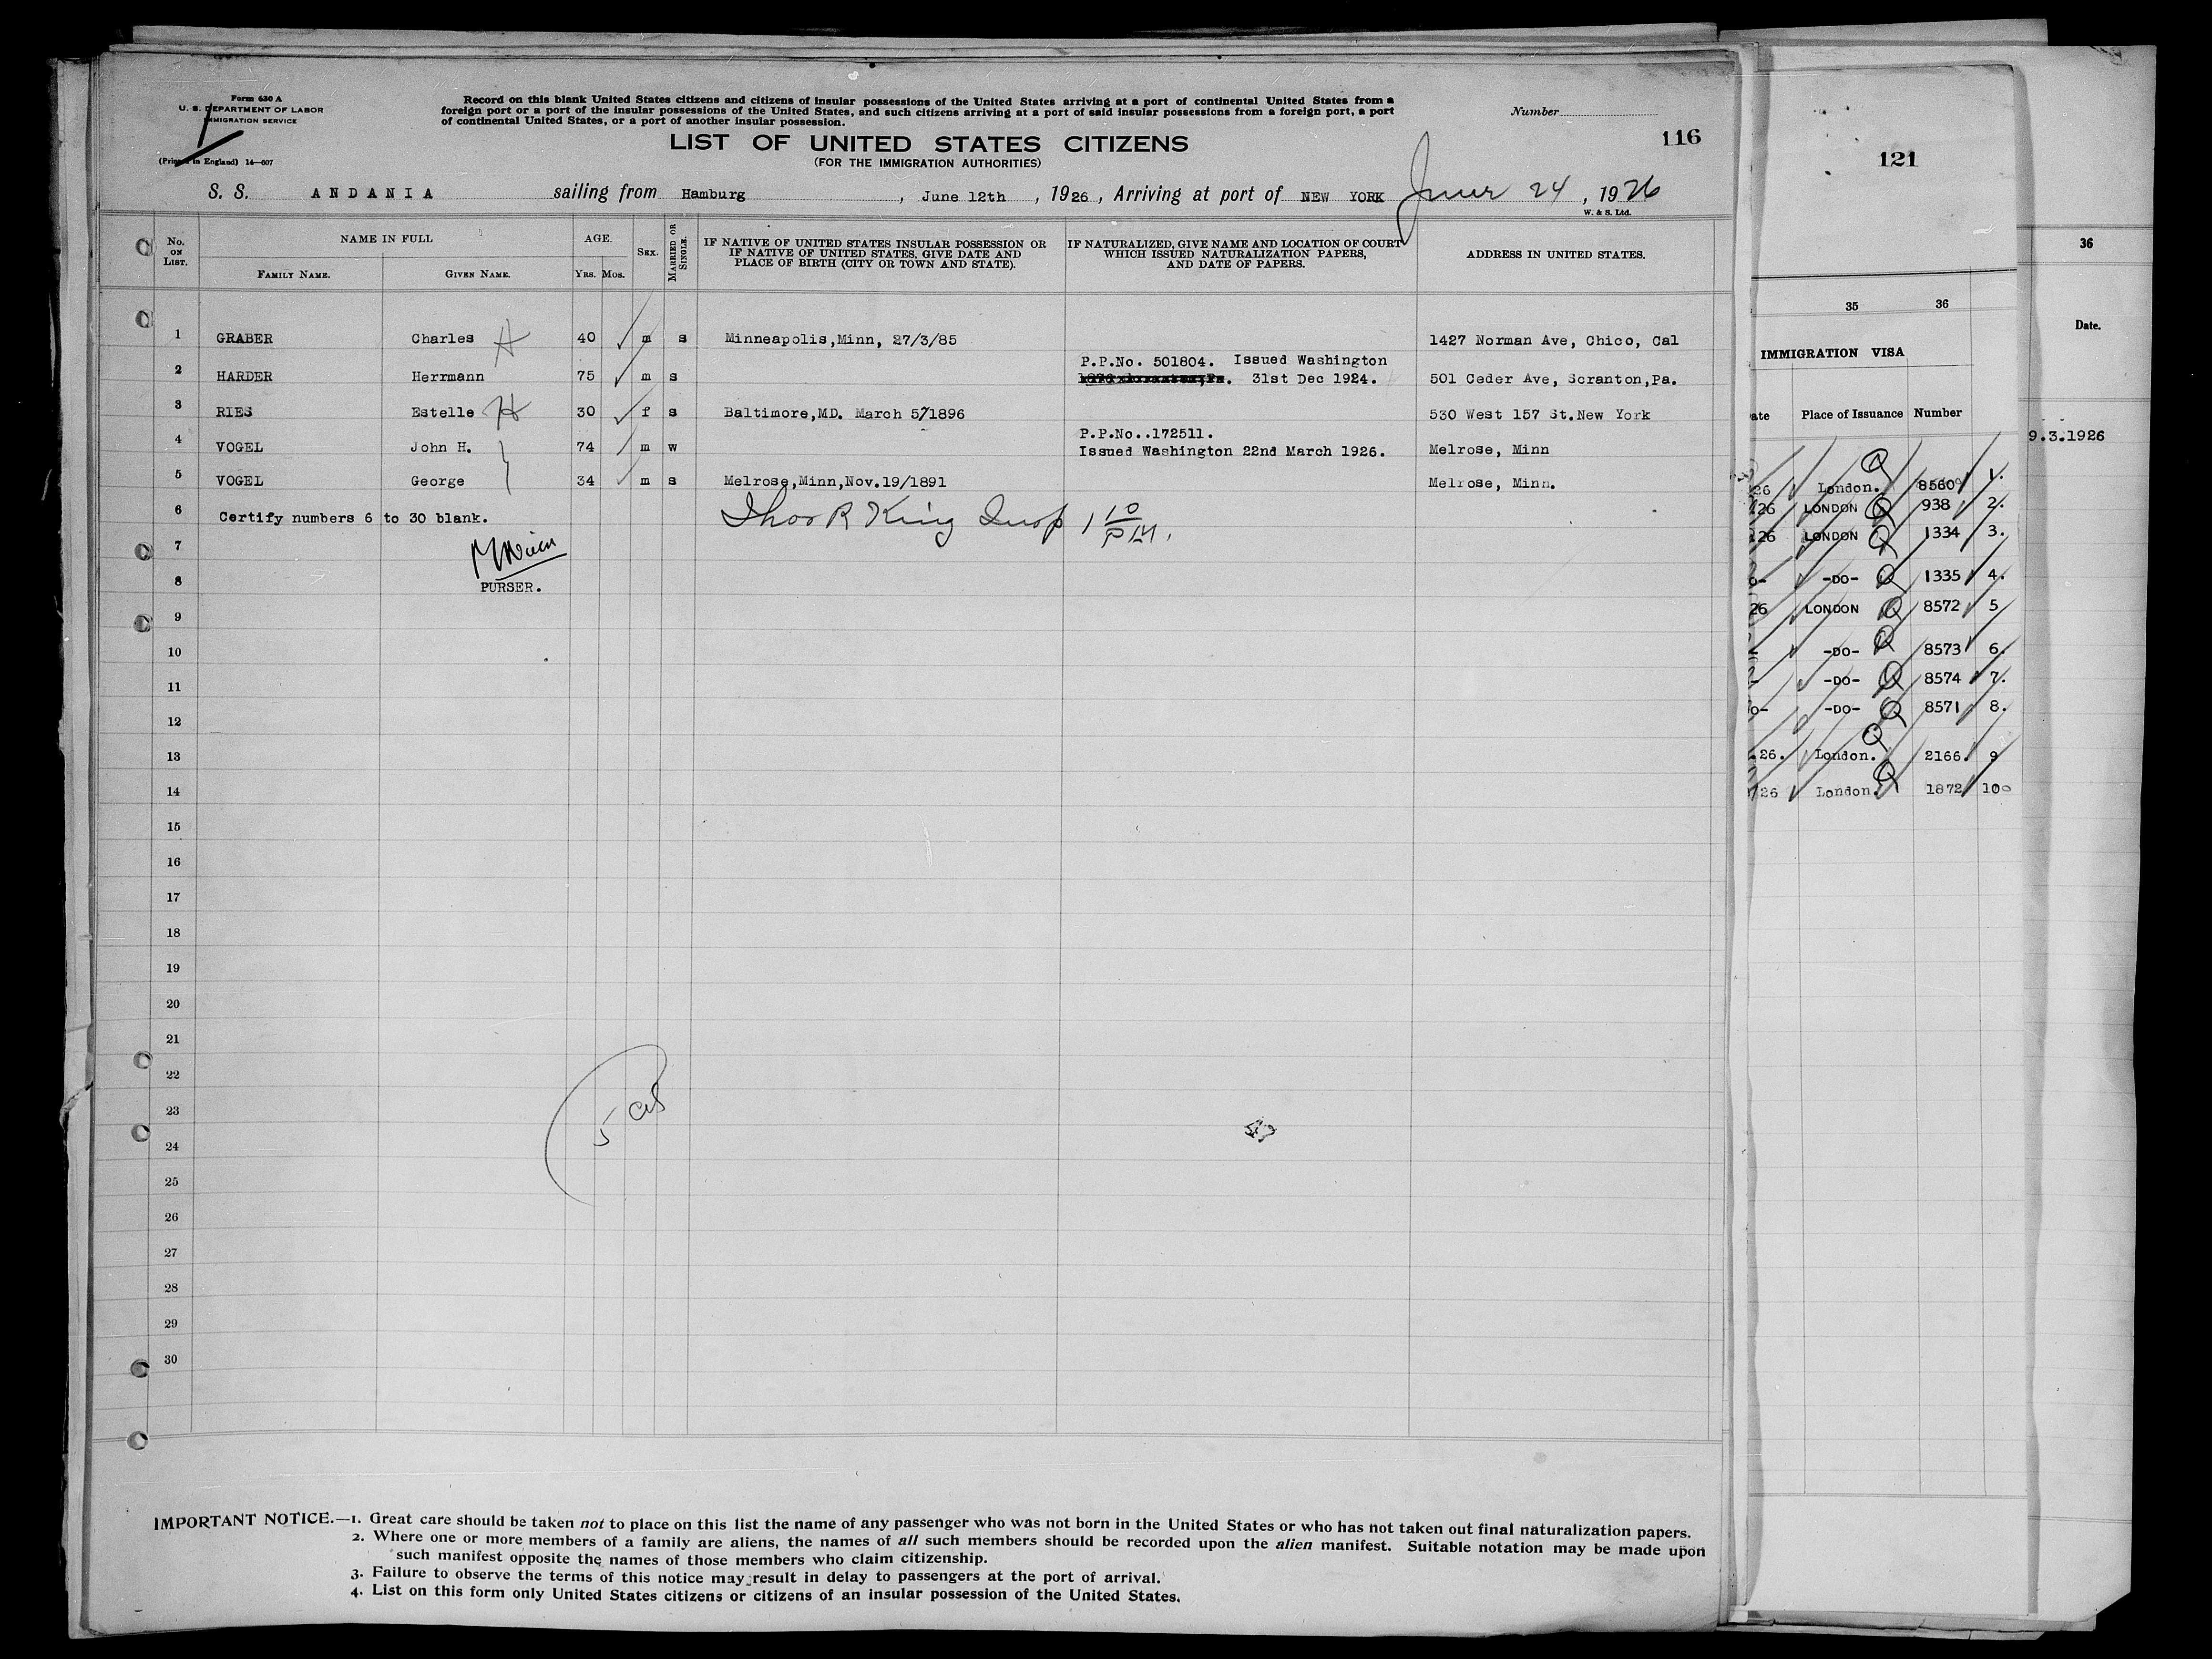 Form 630 A
U. S. DEPARTMENT OF LABOR
IMMIGRATION SERVICE
(Printed in England) 14—607
Record on this blank United States citizens and citizens of insular possessions of the United States arriving at a port of continental United States from a
foreign port or a port of the insular possessions of the United States, and such citizens arriving at a port of said insular possessions from a foreign port, a port
of continental United States, or a port of another insular possession.
Number
116
LIST OF UNITED STATES CITIZENS
(FOR THE IMMIGRATION AUTHORITIES)
S. S. ANDANIA sailing from Hamburg, June 12th, 1926, Arriving at port of NEW YORK June 24, 1926
W. & S. Ltd.
No. ON LIST. NAME IN FULL AGE. SEX. MARRIED OR SINGLE. IF NATIVE OF UNITED STATES INSULAR POSSESSION OR IF NATIVE OF UNITED STATES, GIVE DATE AND PLACE OF BIRTH (CITY OR TOWN AND STATE). IF NATURALIZED, GIVE NAME AND LOCATION OF COURT WHICH ISSUED NATURALIZATION PAPERS, AND DATE OF PAPERS. ADDRESS IN UNITED STATES.
FAMILY NAME. GIVEN NAME. YRS. MOS.
1 GRABER Charles 40 m s Minneapolis,Minn, 27/3/85 1427 Norman Ave, Chico, Cal
P.P.No. 501804. Issued Washington
2 HARDER Herrmann 75 m s 31st Dec 1924. 501 Ceder Ave, Scranton,Pa.
3 RIES Estelle 30 f s Baltimore,MD. March 5/1896 530 West 157 St.New York
P.P.No..172511.
4 VOGEL John H. 74 m w Issued Washington 22nd March 1926. Melrose, Minn
5 VOGEL George 34 m s Melrose,Minn,Nov.19/1891 Melrose, Minn.
6 Certify numbers 6 to 30 blank. Thos R King Insp 1 10 PM.
7
8 PURSER.
9
10
11
12
13
14
15
16
17
18
19
20
21
22
23 5
24
25
26
27
28
29
30
IMPORTANT NOTICE.—1. Great care should be taken not to place on this list the name of any passenger who was not born in the United States or who has not taken out final naturalization papers.
2. Where one or more members of a family are aliens, the names of all such members should be recorded upon the alien manifest. Suitable notation may be made upon
such manifest opposite the names of those members who claim citizenship.
3. Failure to observe the terms of this notice may result in delay to passengers at the port of arrival.
4. List on this form only United States citizens or citizens of an insular possession of the United States.
121
35 36
IMMIGRATION VISA
ate Place of Issuance Number
26 London. 8560 1.
26 LONDON 938 2.
26 LONDON 1334 3.
o- -DO- 1335 4.
26 LONDON 8572 5
-DO- 8573 6.
-DO- 8574 7.
o- -DO- 8571 8.
.26. London. 2166. 9
/26 London. 1872 10
36
Date.
9.3.1926